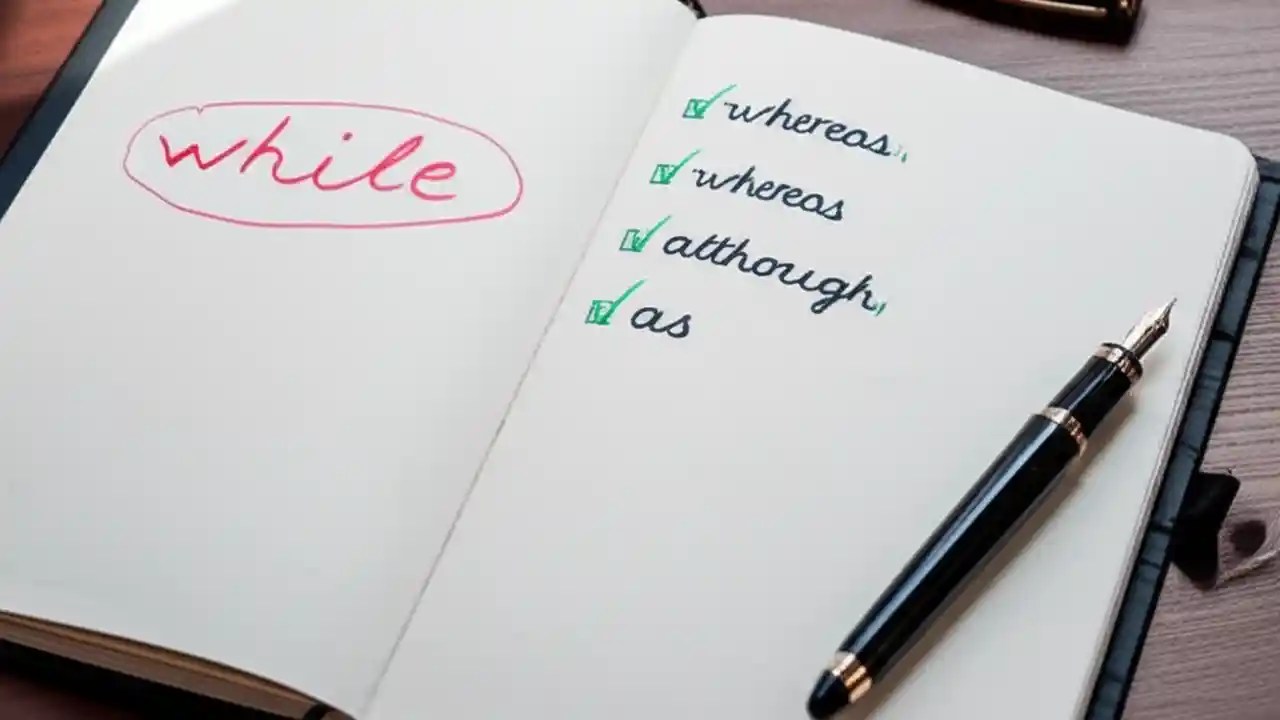 while
whereas,
whereas
although,
as